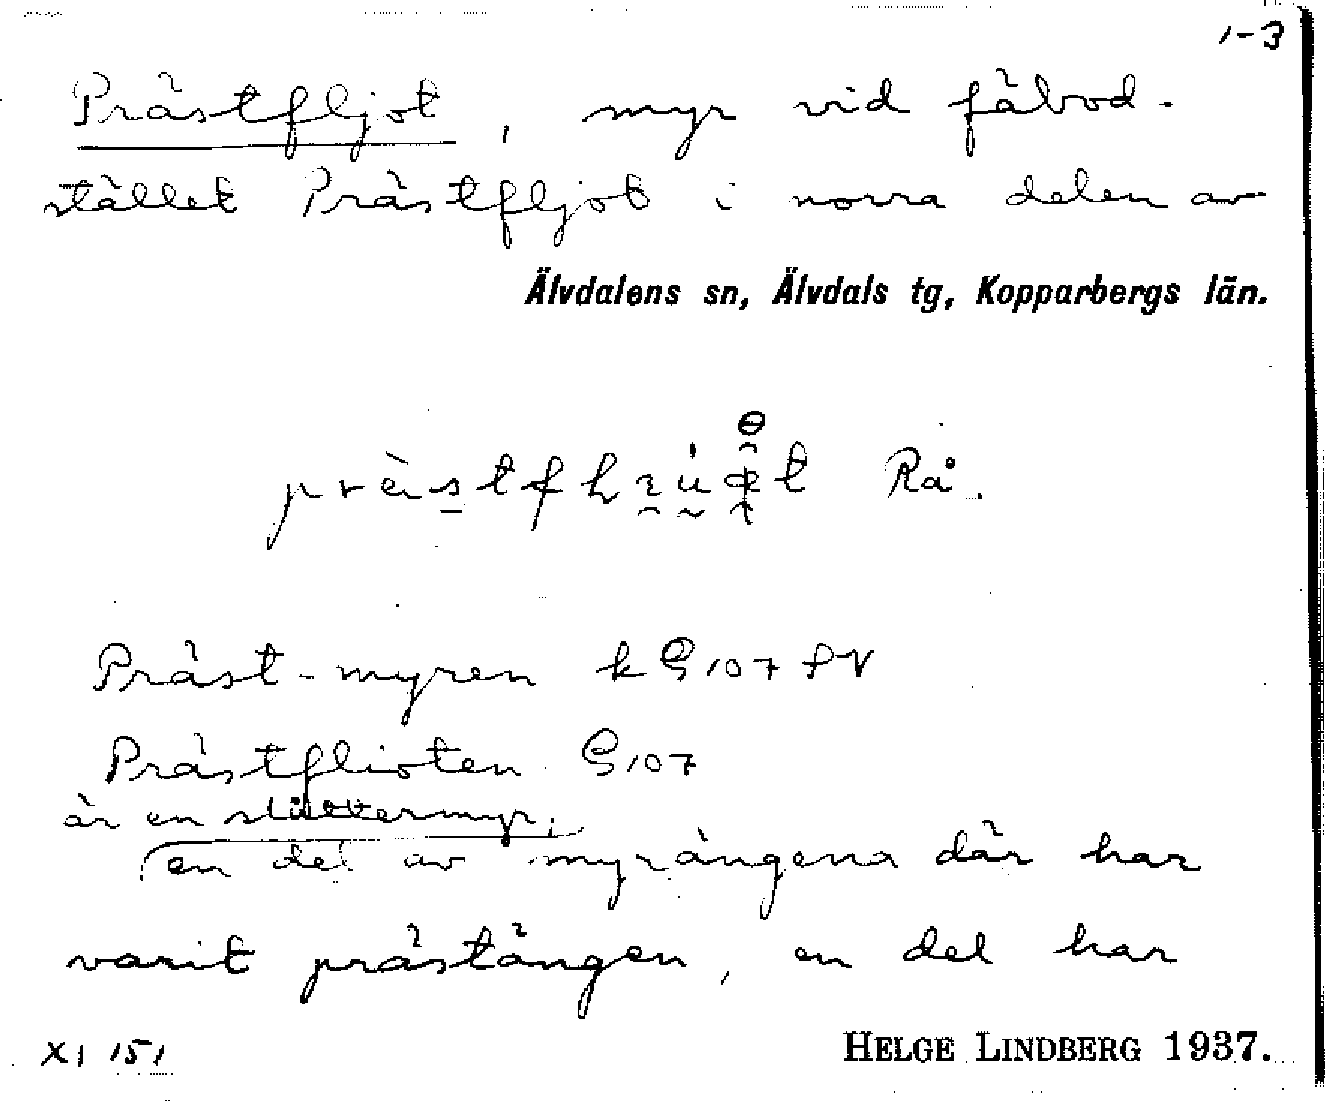 1-3
Prästfljot, myr vid fäbod-
stället Prästfljot i norra delen av
Älvdalens sn, Älvdals tg, Kopparbergs län.
Rå.
Präst-myren k G 107 PV
Prästflioten G 107
är en slåttermyr;
en del av myrängena där har
varit prästängen, en del har
XI 151
HELGE LINDBERG 1937.